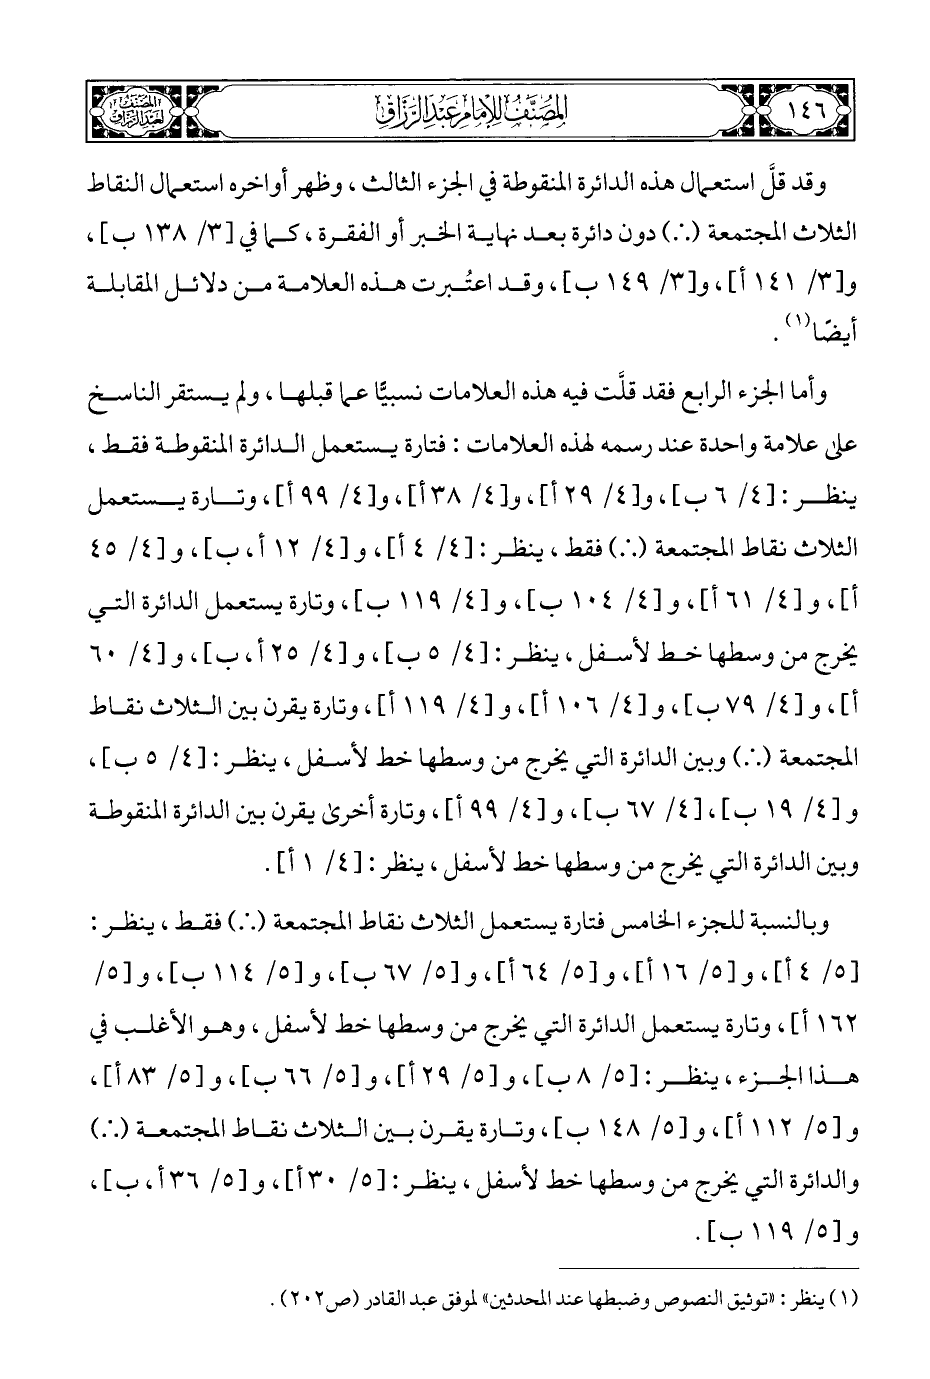 ١٤٦
المصنف للإمام عبد الرزاق
المصنف
لعبد الرزاق
وقد قلَّ استعمال هذه الدائرة المنقوطة في الجزء الثالث ، وظهر أواخره استعمال النقاط
الثلاث المجتمعة (∴) دون دائرة بعد نهاية الخبر أو الفقرة ، كما في [٣/ ١٣٨ ب] ،
و[٣/ ١٤١ أ] ، و[٣/ ١٤٩ ب] ، وقد اعتُبرت هذه العلامة من دلائل المقابلة
أيضًا(١) .
وأما الجزء الرابع فقد قلَّت فيه هذه العلامات نسبيًّا عما قبلها ، ولم يستقر الناسخ
على علامة واحدة عند رسمه لهذه العلامات : فتارة يستعمل الدائرة المنقوطة فقط ،
ينظر : [٤/ ٦ ب] ، و[٤/ ٢٩ أ] ، و[٤/ ٣٨ أ] ، و[٤/ ٩٩ أ] ، وتارة يستعمل
الثلاث نقاط المجتمعة (∴) فقط ، ينظر : [٤/ ٤ أ] ، و[٤/ ١٢ أ ، ب] ، و[٤/ ٤٥
أ] ، و[٤/ ٦١ أ] ، و[٤/ ١٠٤ ب] ، و[٤/ ١١٩ ب] ، وتارة يستعمل الدائرة التي
يخرج من وسطها خط لأسفل ، ينظر : [٤/ ٥ ب] ، و[٤/ ٢٥ أ ، ب] ، و[٤/ ٦٠
أ] ، و[٤/ ٧٩ ب] ، و[٤/ ١٠٦ أ] ، و[٤/ ١١٩ أ] ، وتارة يقرن بين الثلاث نقاط
المجتمعة (∴) وبين الدائرة التي يخرج من وسطها خط لأسفل ، ينظر : [٤/ ٥ ب] ،
و[٤/ ١٩ ب] ، [٤/ ٦٧ ب] ، و[٤/ ٩٩ أ] ، وتارة أخرى يقرن بين الدائرة المنقوطة
وبين الدائرة التي يخرج من وسطها خط لأسفل ، ينظر : [٤/ ١ أ] .
وبالنسبة للجزء الخامس فتارة يستعمل الثلاث نقاط المجتمعة (∴) فقط ، ينظر :
[٥/ ٤ أ] ، و[٥/ ١٦ أ] ، و[٥/ ٦٤ أ] ، و[٥/ ٦٧ ب] ، و[٥/ ١١٤ ب] ، و[٥/
١٦٢ أ] ، وتارة يستعمل الدائرة التي يخرج من وسطها خط لأسفل ، وهو الأغلب في
هذا الجزء ، ينظر : [٥/ ٨ ب] ، و[٥/ ٢٩ أ] ، و[٥/ ٦٦ ب] ، و[٥/ ٨٣ أ] ،
و[٥/ ١١٢ أ] ، و[٥/ ١٤٨ ب] ، وتارة يقرن بين الثلاث نقاط المجتمعة (∴)
والدائرة التي يخرج من وسطها خط لأسفل ، ينظر : [٥/ ٣٠ أ] ، و[٥/ ٣٦ أ ، ب] ،
و[٥/ ١١٩ ب] .
(١) ينظر : «توثيق النصوص وضبطها عند المحدثين» لموفق عبد القادر (ص٢٠٢) .